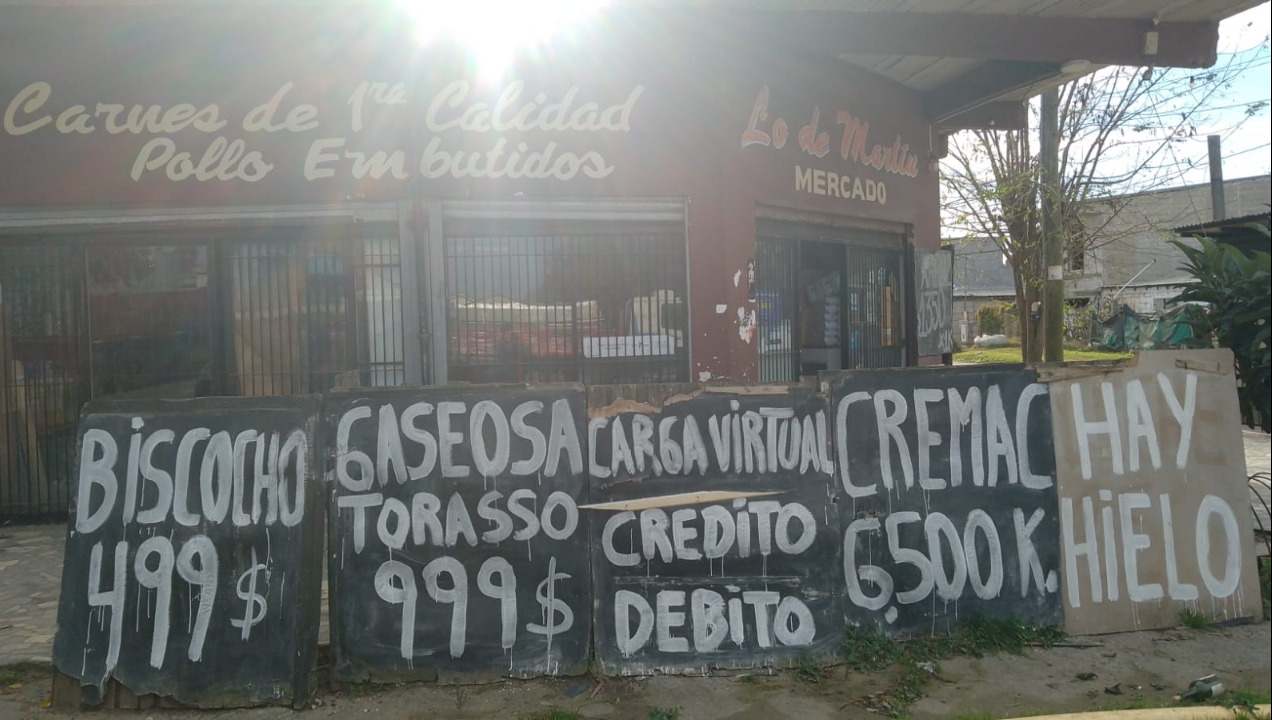 Carnes de 1ra Calidad
Pollo Embutidos
Lo de Martin
MERCADO
BISCOCHO
499 $
GASEOSA
TORASSO
999 $
CARGA VIRTUAL
CREDITO
DEBITO
CREMAC
6,500 K.
HAY
HIELO